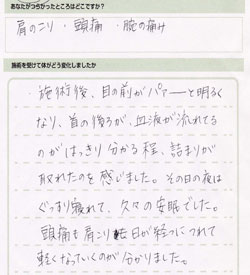 あなたがつらかったところはどこですか？
肩のこり ・ 頭痛 ・ 腕の痛み
施術を受けて体がどう変化しましたか
・施術後、目の前がパァーと明るく
なり、首の後ろが、血液が流れてる
のがはっきり分かる程、詰まりが
取れたのを感じました。その日の夜は
ぐっすり寝れて、久々の安眠でした。
頭痛も肩こりも日が経つにつれて
軽くなっていくのが分かりました。